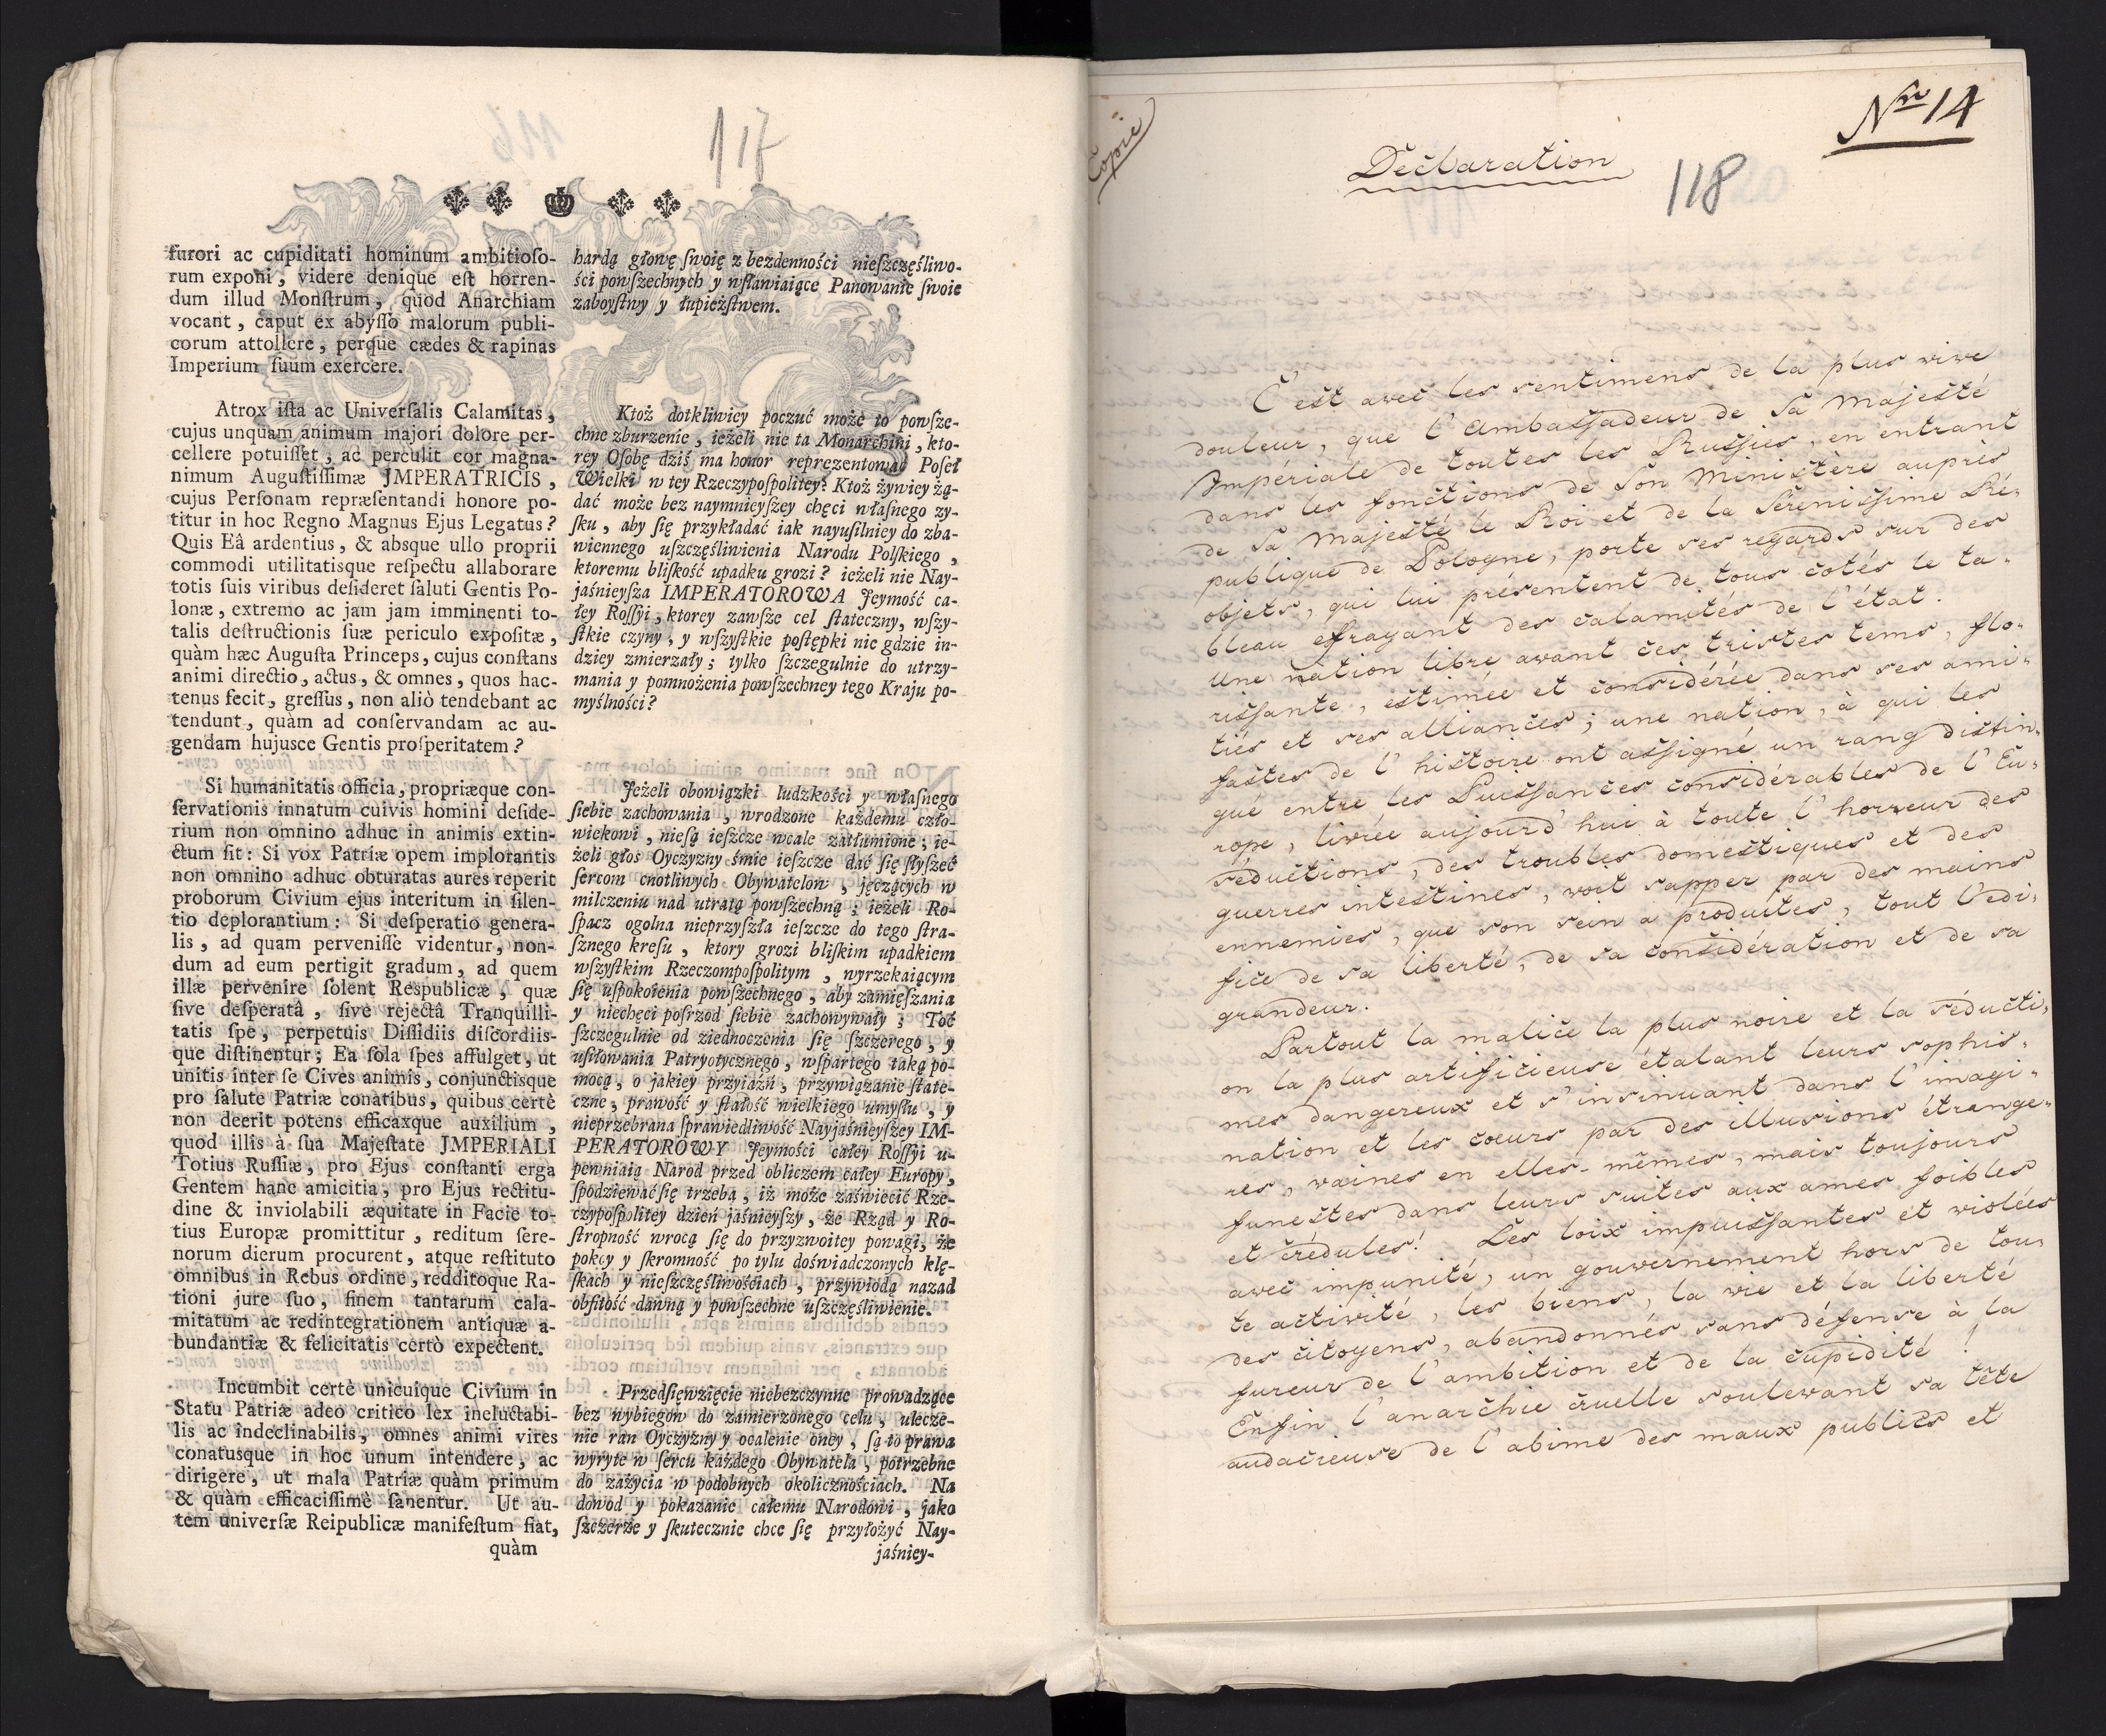 117
furori ac cupiditati hominum ambitioſo-
rum exponi, videre denique eſt horren-
dum illud Monſtrum, quod Anarchiam
vocant, caput ex abyſſo malorum publi-
corum attollere, perque cædes & rapinas
Imperium ſuum exercere.
Atrox iſta ac Univerſalis Calamitas,
cujus unquam animum majori dolore per-
cellere potuiſſet, ac perculit cor magna-
nimum Auguſtiſſimæ JMPERATRICIS,
cujus Perſonam repræſentandi honore po-
titur in hoc Regno Magnus Ejus Legatus?
Quis Eâ ardentius, & absque ullo proprii
commodi utilitatisque reſpectu allaborare
totis ſuis viribus deſideret ſaluti Gentis Po-
lonæ, extremo ac jam jam imminenti to-
talis deſtructionis ſuæ periculo expoſitæ,
quàm hæc Auguſta Princeps, cujus conſtans
animi directio, actus, & omnes, quos hac-
tenus fecit, greſſus, non aliò tendebant ac
tendunt, quàm ad conſervandam ac au-
gendam hujusce Gentis proſperitatem?
Si humanitatis officia, propriæque con-
ſervationis innatum cuivis homini deſide-
rium non omnino adhuc in animis extin-
ctum ſit: Si vox Patriæ opem implorantis
non omnino adhuc obturatas aures reperit
proborum Civium ejus interitum in ſilen-
tio deplorantium: Si deſperatio genera-
lis, ad quam perveniſſe videntur, non-
dum ad eum pertigit gradum, ad quem
illæ pervenire ſolent Respublicæ, quæ
ſive deſperatâ, ſive rejectâ Tranquilli-
tatis ſpe, perpetuis Diſſidiis diſcordiis-
que diſtinentur; Ea ſola ſpes affulget, ut
unitis inter ſe Cives animis, conjunctisque
pro ſalute Patriæ conatibus, quibus certè
non deerit potens efficaxque auxilium,
quod illis à ſua Majeſtate JMPERIALI
Totius Ruſſiæ, pro Ejus conſtanti erga
Gentem hanc amicitia, pro Ejus rectitu-
dine & inviolabili æquitate in Facie to-
tius Europæ promittitur, reditum ſere-
norum dierum procurent, atque reſtituto
omnibus in Rebus ordine, redditoque Ra-
tioni jure ſuo, finem tantarum cala-
mitatum ac redintegrationem antiquæ a-
bundantiæ & felicitatis certò expectent.
Incumbit certè unicuique Civium in
Statu Patriæ adeo critico lex ineluctabi-
lis ac indeclinabilis, omnes animi vires
conatusque in hoc unum intendere, ac
dirigere, ut mala Patriæ quàm primum
& quàm efficaciſſimè ſanentur. Ut au-
tem univerſæ Reipublicæ manifeſtum fiat,
quàm
hardą głowę ſwoię z bezdenności nieſzczęśliwo-
ści powſzechnych y wſławiaiące Panowanie ſwoie
zaboyſtwy y łupieżſtwem.
Ktoż dotkliwiey poczuć może to powſze-
chne zburzenie, ieżeli nie ta Monarchini, kto-
rey Oſobę dziś ma honor reprezentować Poſeł
Wielki w tey Rzeczypoſpolitey? Ktoż żywiey żą-
dać może bez naymnieyſzey chęci właſnego zy-
ſku, aby ſię przykładać iak nayuſilniey do zba-
wiennego uſzczęśliwienia Narodu Polſkiego,
ktoremu bliſkość upadku grozi? ieżeli nie Nay-
jaśnieyſza IMPERATOROWA Jeymość ca-
łey Roſſyi, ktorey zawſze cel ſtateczny, wſzy-
ſtkie czyny, y wſzyſtkie poſtępki nie gdzie in-
dziey zmierzały; tylko ſzczegulnie do utrzy-
mania y pomnożenia powſzechney tego Kraju po-
myślności?
Jeżeli obowiązki ludzkości y właſnego
ſiebie zachowania, wrodzone każdemu czło-
wiekowi, nieſą ieſzcze wcale zatłumione; ie-
żeli głos Oyczyzny śmie ieſzcze dać ſię ſłyſzeć
ſercom cnotliwych Obywatelow, jęczących w
milczeniu nad utratą powſzechną; ieżeli Ro-
ſpacz ogolna nieprzyſzła ieſzcze do tego ſtra-
ſznego kreſu, ktory grozi bliſkim upadkiem
wſzyſtkim Rzeczompoſpolitym, wyrzekaiącym
ſię uſpokoienia powſzechnego, aby zamięſzania
y niechęci poſrzod ſiebie zachowywały; Toć
ſzczegulnie od ziednoczenia ſię ſzczerego, y
uſiłowania Patryotycznego, wſpartego taką po-
mocą, o jakiey przyiaźń, przywiązanie ſtate-
czne, prawość y ſtałość wielkiego umyſłu, y
nieprzebrana ſprawiedliwość Nayjaśnieyſzey IM-
PERATOROWY Jeymości całey Roſſyi u-
pewniaią Narod przed obliczem całey Europy,
ſpodziewać ſię trzeba, iż może zaświecić Rze-
czypoſpolitey dzień jaśnieyſzy, że Rząd y Ro-
ſtropność wrocą ſię do przyzwoitey powagi, że
pokoy y ſkromność po tylu doświadczonych klę-
ſkach y nieſzczęśliwościach, przywiodą nazad
obfitość dawną y powſzechne uſzczęśliwienie.
Przedſięwzięcie niebezczynne prowadzące
bez wybiegow do zamierzonego celu, ulecze-
nie ran Oyczyzny y ocalenie oney, ſą to prawa
wyryte w ſercu każdego Obywatela, potrzebne
do zażycia w podobnych okolicznościach. Na
dowod y pokazanie całemu Narodowi, jako
ſzczerze y ſkutecznie chce ſię przyłożyć Nay-
jaśniey-
Copie
Nro 14
Déclaration
118
C'est avec les sentimens de la plus vive
douleur, que l'Ambassadeur de Sa Majesté
Impériale de toutes les Russies, en entrant
dans les fonctions de Son Ministère auprès
de Sa Majesté le Roi et de la Sérénissime Ré-
publique de Pologne, porte ses regards sur des
objets, qui lui présentent de tous cotés le ta-
bleau efrayant des calamités de l'état.
Une nation libre avant ces tristes tems, flo-
rissante, estimée et considérée dans ses ami-
tiés et ses alliances; une nation, à qui les
fastes de l'histoire ont assigné un rang distin-
gué entre les Puissances considérables de l'Eu-
rope, livrée aujourd'hui à toute l'horreur des
séductions, des troubles domestiques et des
guerres intestines, voit sapper par des mains
ennemies, que son sein a produites, tout l'edi-
fice de sa liberté, de sa considération et de sa
grandeur.
Partout la malice la plus noire et la séducti-
on la plus artificieuse étalant leurs sophis-
mes dangereux et s'insinuant dans l'imagi-
nation et les coeurs par des illusions étrange-
res, vaines en elles-mêmes, mais toujours
funestes dans leurs suites aux ames foibles
et crédules! Les loix impuissantes et violées
avec impunité, un gouvernement hors de tou-
te activité, les biens, la vie et la liberté
des citoyens, abandonnés sans défense à la
fureur de l'ambition et de la cupidité!
Enfin l'anarchie cruelle soulevant sa tête
audacieuse de l'abime des maux publics et